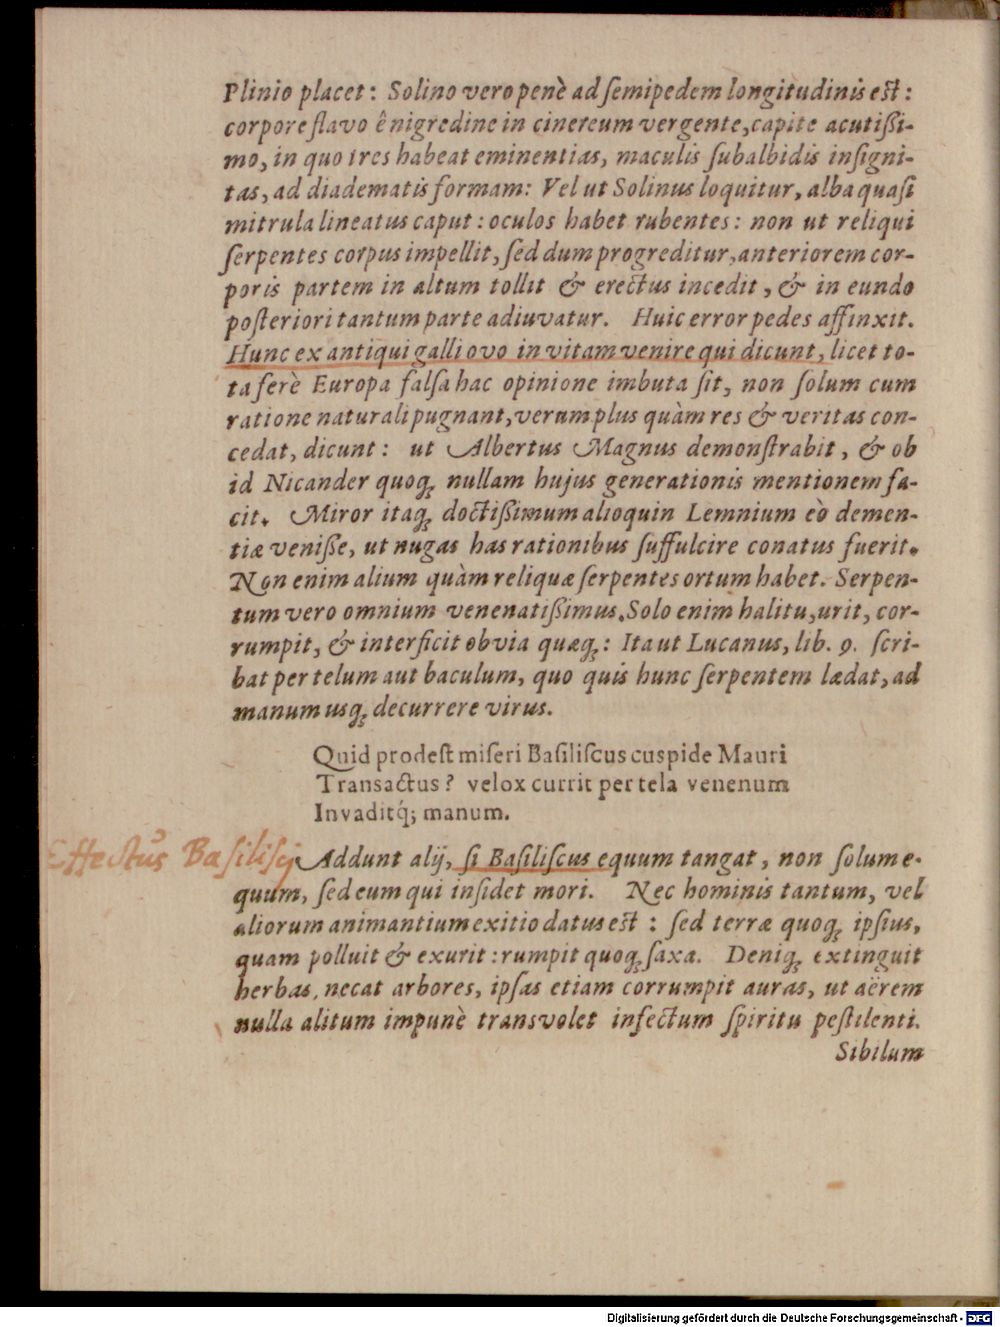 Plinio placet: Solino vero penè ad ſemipedem longitudinis est:
corpore flavo ê nigredine in cinereum vergente, capite acutiſſi-
mo, in quo tres habeat eminentias, maculis ſubalbidis inſigni-
tas, ad diadematis formam: Vel ut Solinus loquitur, alba quaſi
mitrula lineatus caput: oculos habet rubentes: non ut reliqui
ſerpentes corpus impellit, ſed dum progreditur, anteriorem cor-
poris partem in altum tollit & erectus incedit, & in eundo
poſteriori tantum parte adiuvatur. Huic error pedes affinxit.
Hunc ex antiqui galli ovo in vitam venire qui dicunt, licet to-
ta ferè Europa falſa hac opinione imbuta ſit, non ſolum cum
ratione naturali pugnant, verum plus quàm res & veritas con-
cedat, dicunt: ut Albertus Magnus demonſtrabit, & ob
id Nicander quoq; nullam hujus generationis mentionem fa-
cit. Miror itaq; doctiſſimum alioquin Lemnium eò demen-
tiæ veniſſe, ut nugas has rationibus ſuffulcire conatus fuerit.
Non enim alium quàm reliquæ ſerpentes ortum habet. Serpen-
tum vero omnium venenatiſſimus. Solo enim halitu, urit, cor-
rumpit, & interficit obvia quæq;: Ita ut Lucanus, lib. 9. ſcri-
bat per telum aut baculum, quo quis hunc ſerpentem lædat, ad
manum usq; decurrere virus.
Quid prodeſt miſeri Baſiliſcus cuspide Mauri
Transactus? velox currit per tela venenum
Invaditq́; manum.
Effectus Baſiliſcj
Addunt alij, ſi Baſiliſcus equum tangat, non ſolum e-
quum, ſed eum qui inſidet mori. Nec hominis tantum, vel
aliorum animantium exitio datus est: ſed terræ quoq; ipſius,
quam polluit & exurit: rumpit quoq; ſaxa. Deniq; extinguit
herbas, necat arbores, ipſas etiam corrumpit auras, ut aërem
nulla alitum impunè transvolet infectum ſpiritu peſtilenti.
Sibilum
Digitalisierung gefördert durch die Deutsche Forschungsgemeinschaft - DFG